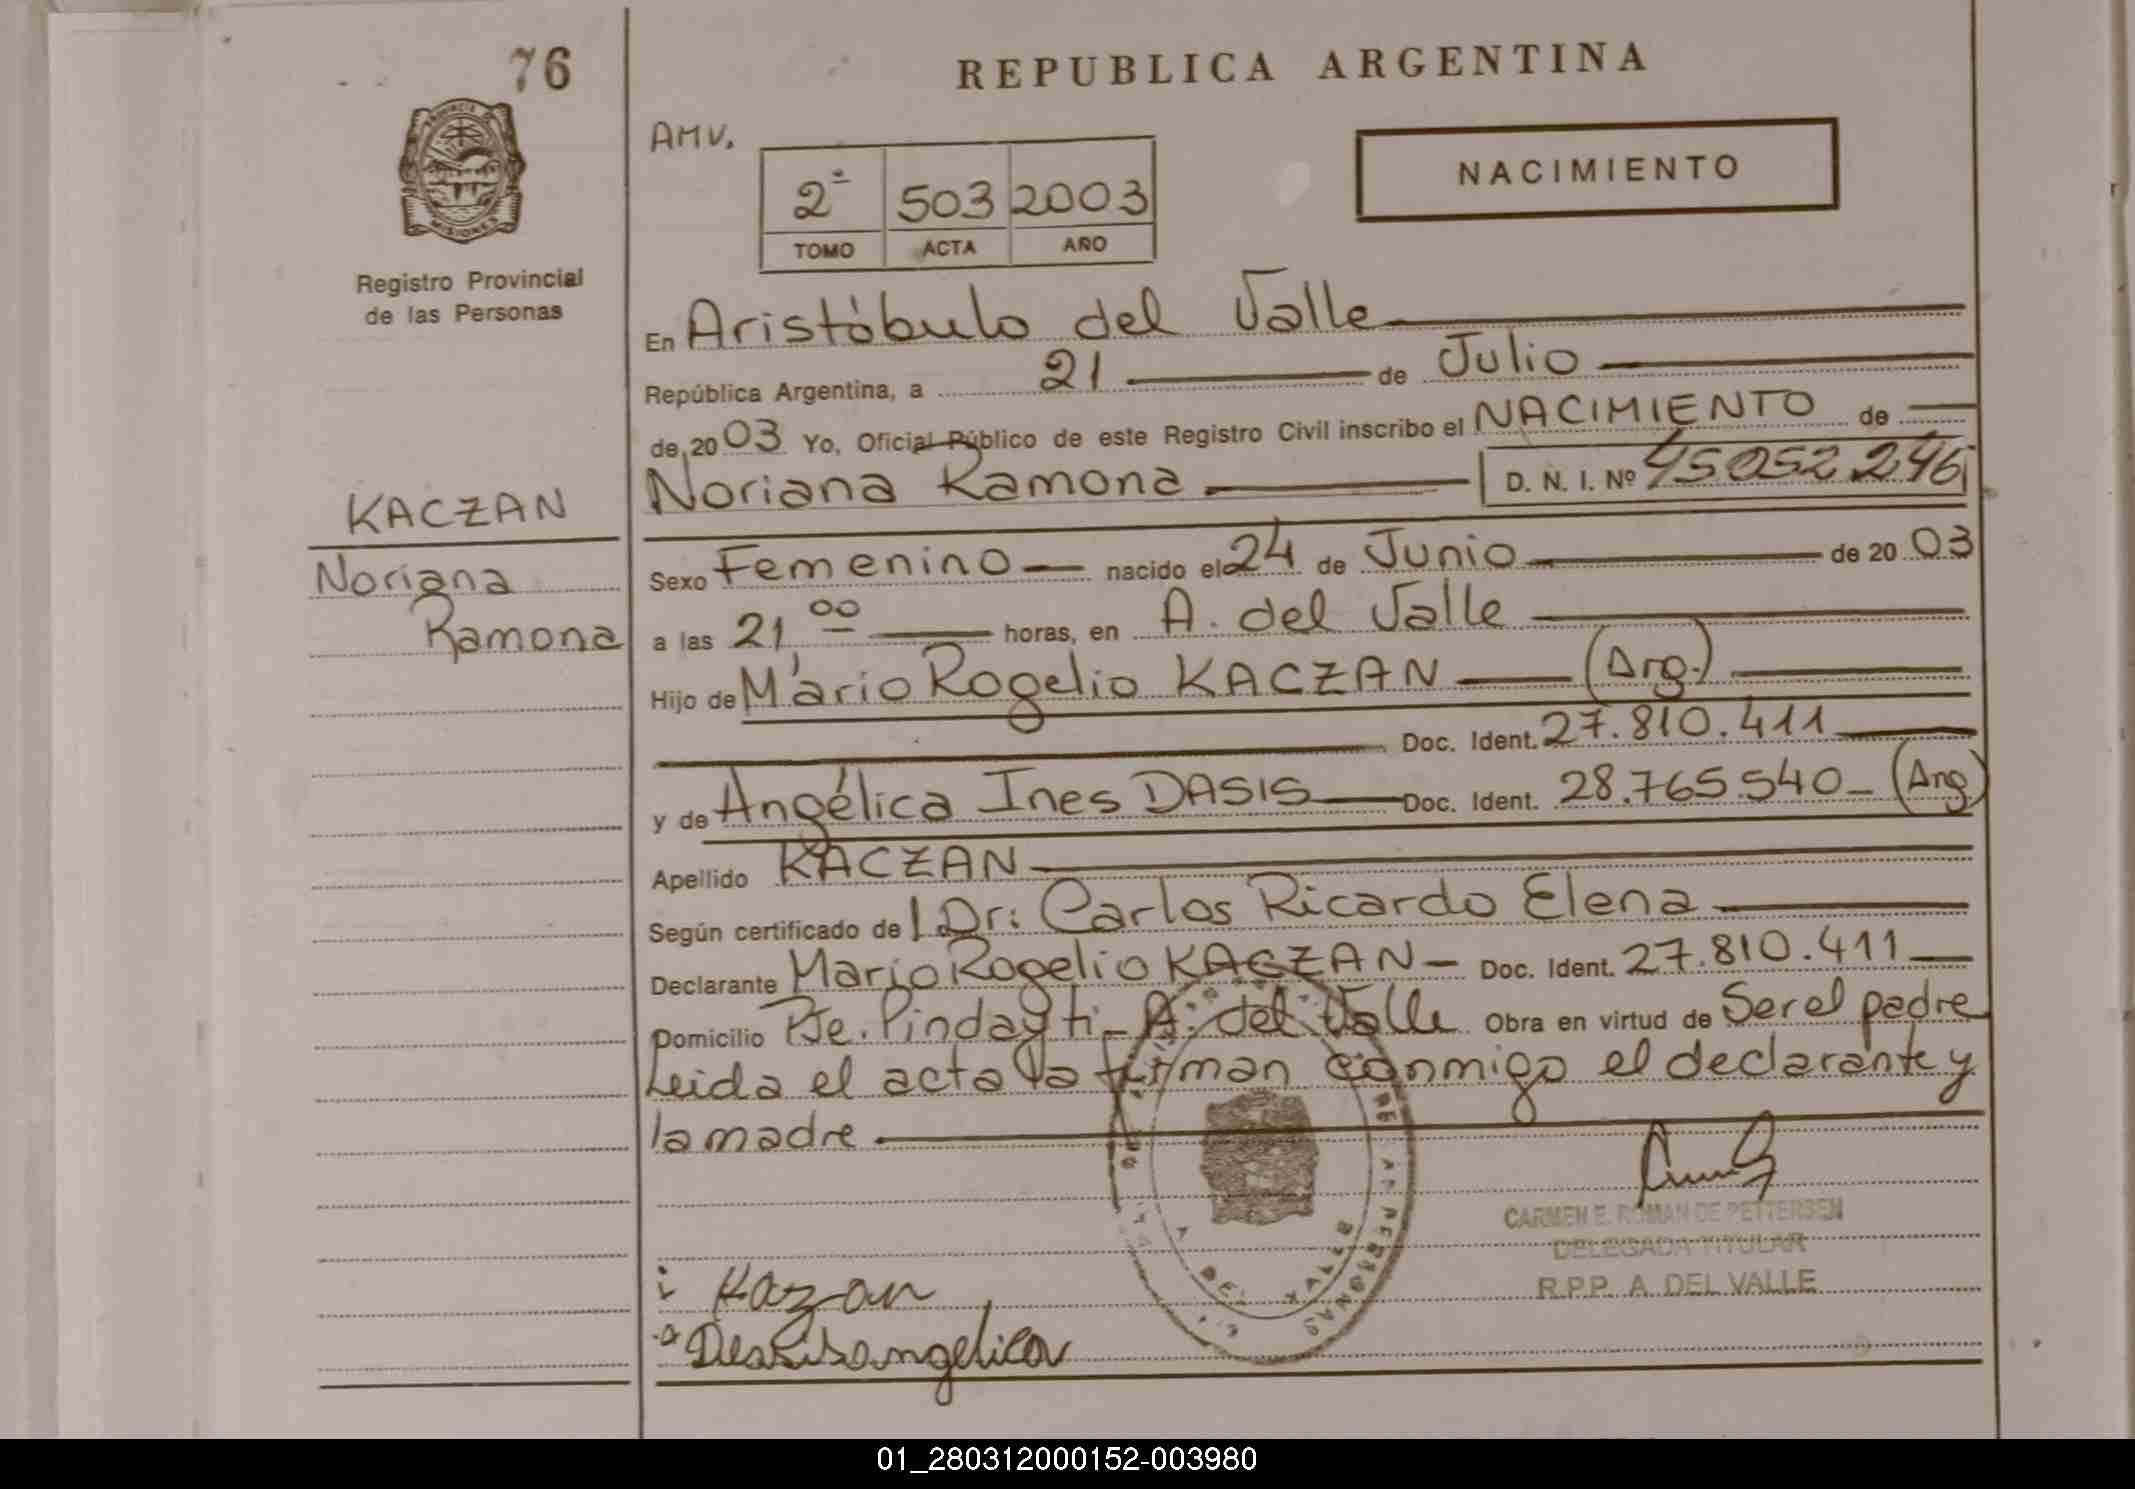 76
REPUBLICA ARGENTINA
AMV.
2ª 503 2003
TOMO ACTA AÑO
NACIMIENTO
PROVINCIA
MISIONES
Registro Provincial
de las Personas
En Aristóbulo del Valle
República Argentina, a 21 de Julio
de 2003 Yo, Oficial Público de este Registro Civil inscribo el NACIMIENTO de
Noriana Ramona D. N. I. Nº 45052246
KACZAN
Noriana
Ramona
Sexo Femenino nacido el 24 de Junio de 2003
a las 21,00 horas, en A. del Valle
Hijo de Mario Rogelio KACZAN (Arg.)
Doc. Ident. 27.810.411
y de Angélica Ines DASIS Doc. Ident. 28.765.540 (Arg)
Apellido KACZAN
Según certificado del Dr: Carlos Ricardo Elena
Declarante Mario Rogelio KACZAN Doc. Ident. 27.810.411
Domicilio Pje. Pindayti - A. del Valle Obra en virtud de Ser el padre
Leida el acta la firman conmigo el declarante y
la madre
CARMEN E. ROMAN DE PETTERSEN
DELEGADA TITULAR
R.P.P. A. DEL VALLE
Kazan
angelica
01_280312000152-003980